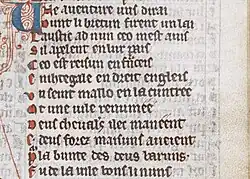 ne aventure uus dirai
Dunt li bretun firent un lai
Laustic ad nun ceo mest auis
Si lapelent en lur pais
Ceo est reisun en franceis
E nihtegale en dreit engleis
En seint mallo en la cuntree
Ot une uile renumee
Deus cheualers ilec maneent
E deus forez maisuns aueient
Pur la bunte des deus baruns
Fu de la uile bons li nuns